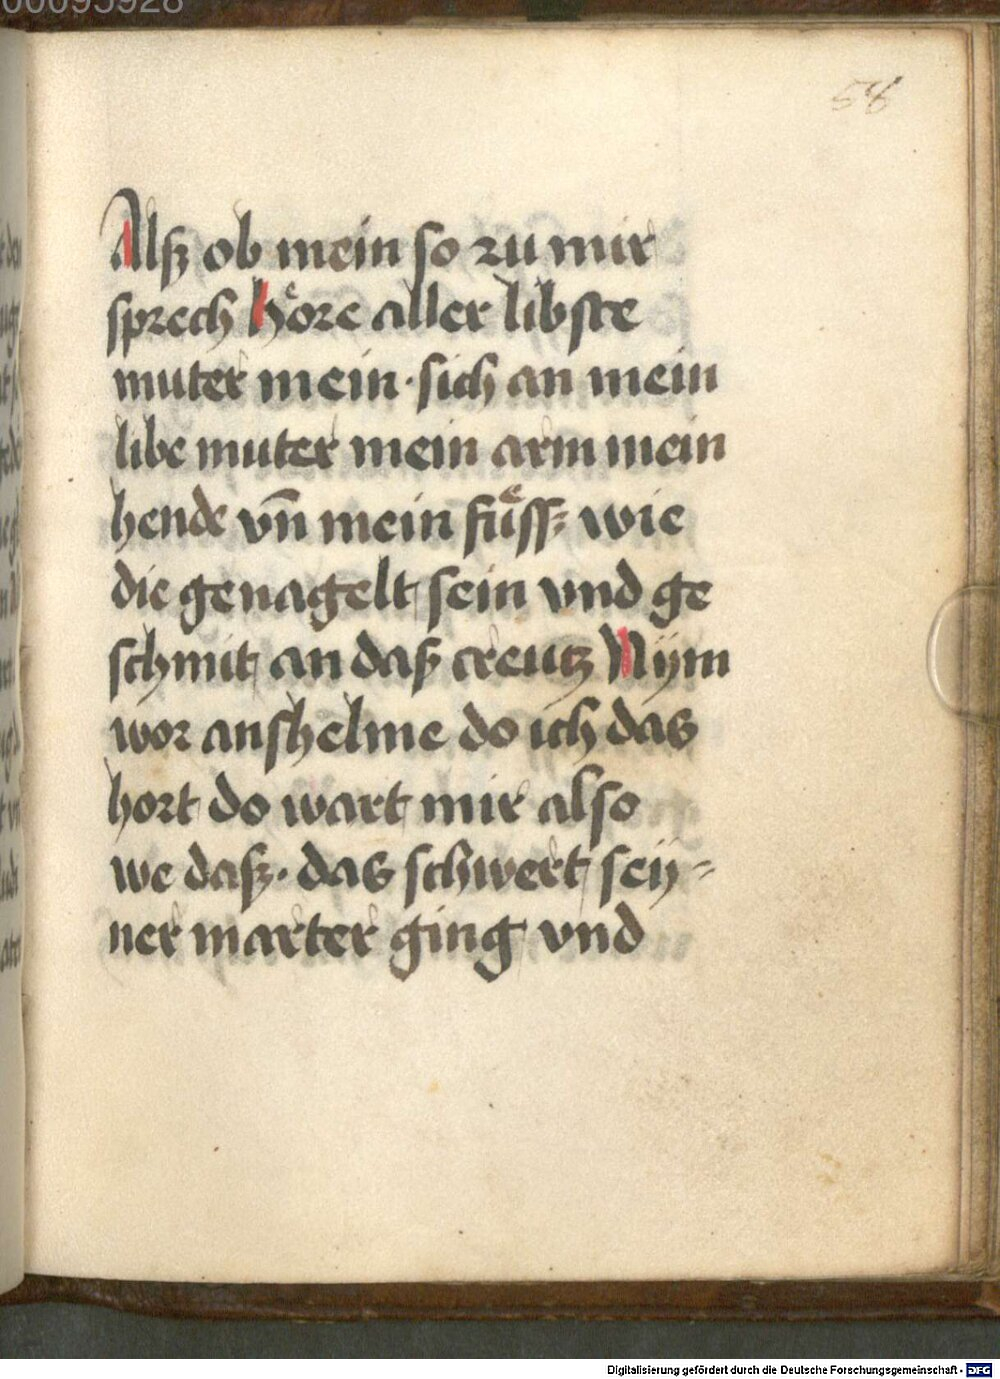 00095928
58
Alsz ob mein so zu mir
sprech hoͤre aller libste
muter mein · sich an mein
libe muter mein arm mein
hende vn̄ mein fuͤss wie
die genagelt sein vnd ge
schmit an daß creutz Nÿm
wor anshelme do ich das
hort do wart mir also
we dasz · das schwert seÿ-
ner marter ging vnd
Digitalisierung gefördert durch die Deutsche Forschungsgemeinschaft - DFG